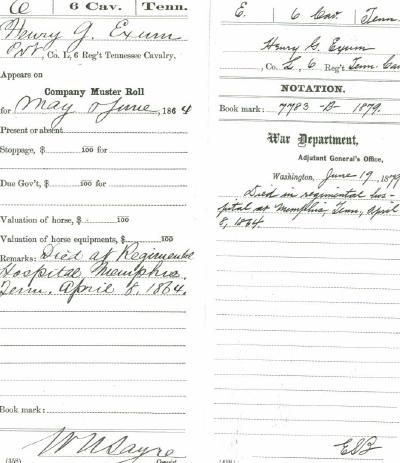 6 Cav. Tenn.
Henry G. Exum
Pvt, Co. L, 6 Reg't Tennessee Cavalry.
Appears on
Company Muster Roll
for May & June, 1864
Present or absent
Stoppage, $ 100 for
Due Gov't, $ 100 for
Valuation of horse, $ 100
Valuation of horse equipments, $ 100
Remarks: Died at Regimental
Hospital, Memphis.
Tenn. April 8, 1864.
Book mark:
(358) Copyist.
E. 6 Cav. Tenn.
Henry G. Exum
, Co. L, 6 Reg't Tenn. Cav
NOTATION.
Book mark: 7783 -B- 1879.
War Department,
Adjutant General's Office,
Washington, June 19, 1879
Died in regimental hos-
pital at Memphis, Tenn, April
8, 1864.